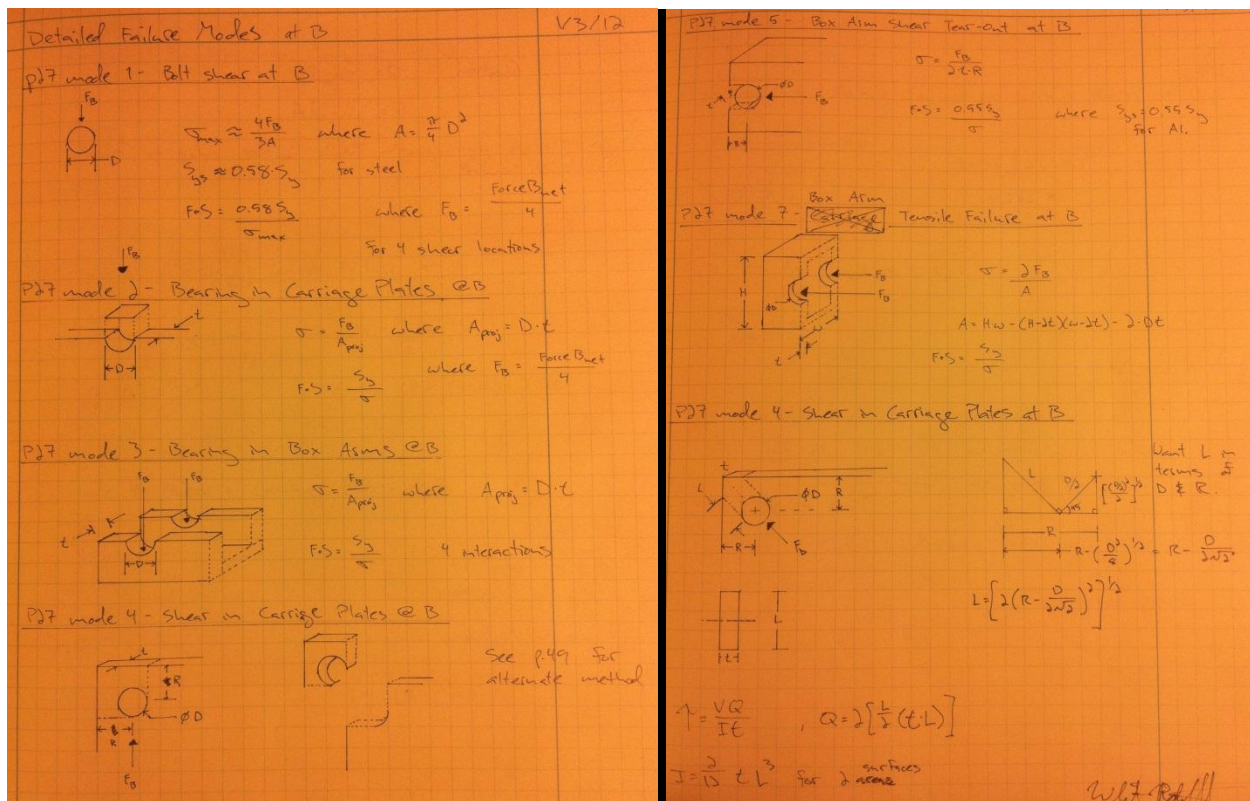 Detailed Failure Modes at B
V3/12
p27 mode 1 - Bolt shear at B
F_B
D
σ_max ≈ 4F_B/3A where A = π/4 D²
S_ys ≈ 0.58·S_y for steel
FoS = 0.58 S_y/σ_max where F_B = ForceB_net/4
for 4 shear locations
F_B
P27 mode 2 - Bearing in Carriage Plates @B
t
D
σ = F_B/A_proj where A_proj = D·t
where F_B = ForceB_net/4
FoS = S_y/σ
P27 mode 3 - Bearing in Box Arms @B
F_B F_B
t
D
σ = F_B/A_proj where A_proj = D·t
FoS = S_y/σ 4 interactions
P27 mode 4 - Shear in Carrige Plates @B
t
R
ØD
R
F_B
See p.49 for
alternate method
P27 mode 5 - Box Arm Shear Tear-Out at B
ØD
t
F_B
R
σ = F_B/2·t·R
FoS = 0.55 S_y/σ where S_ys = 0.55 S_y
for Al.
Box Arm
P27 mode 7 - Carriage Tensile Failure at B
H
ØD
F_B
F_B
w
t
σ = 2F_B/A
A = H·w - (H-2t)(w-2t) - 2·Dt
FoS = S_y/σ
P27 mode 4 - Shear in Carriage Plates at B
t
L
ØD
R
R
F_B
Want L in
terms of
D & R.
L
D/2
[(D/2)²/2]^1/2
45
R
R - (D²/8)^1/2 = R - D/2√2
L = [2(R - D/2√2)²]^1/2
L
t
τ = VQ/It , Q = 2[L/2 (t·L)]
I = 2/12 t L³ for 2 surfaces